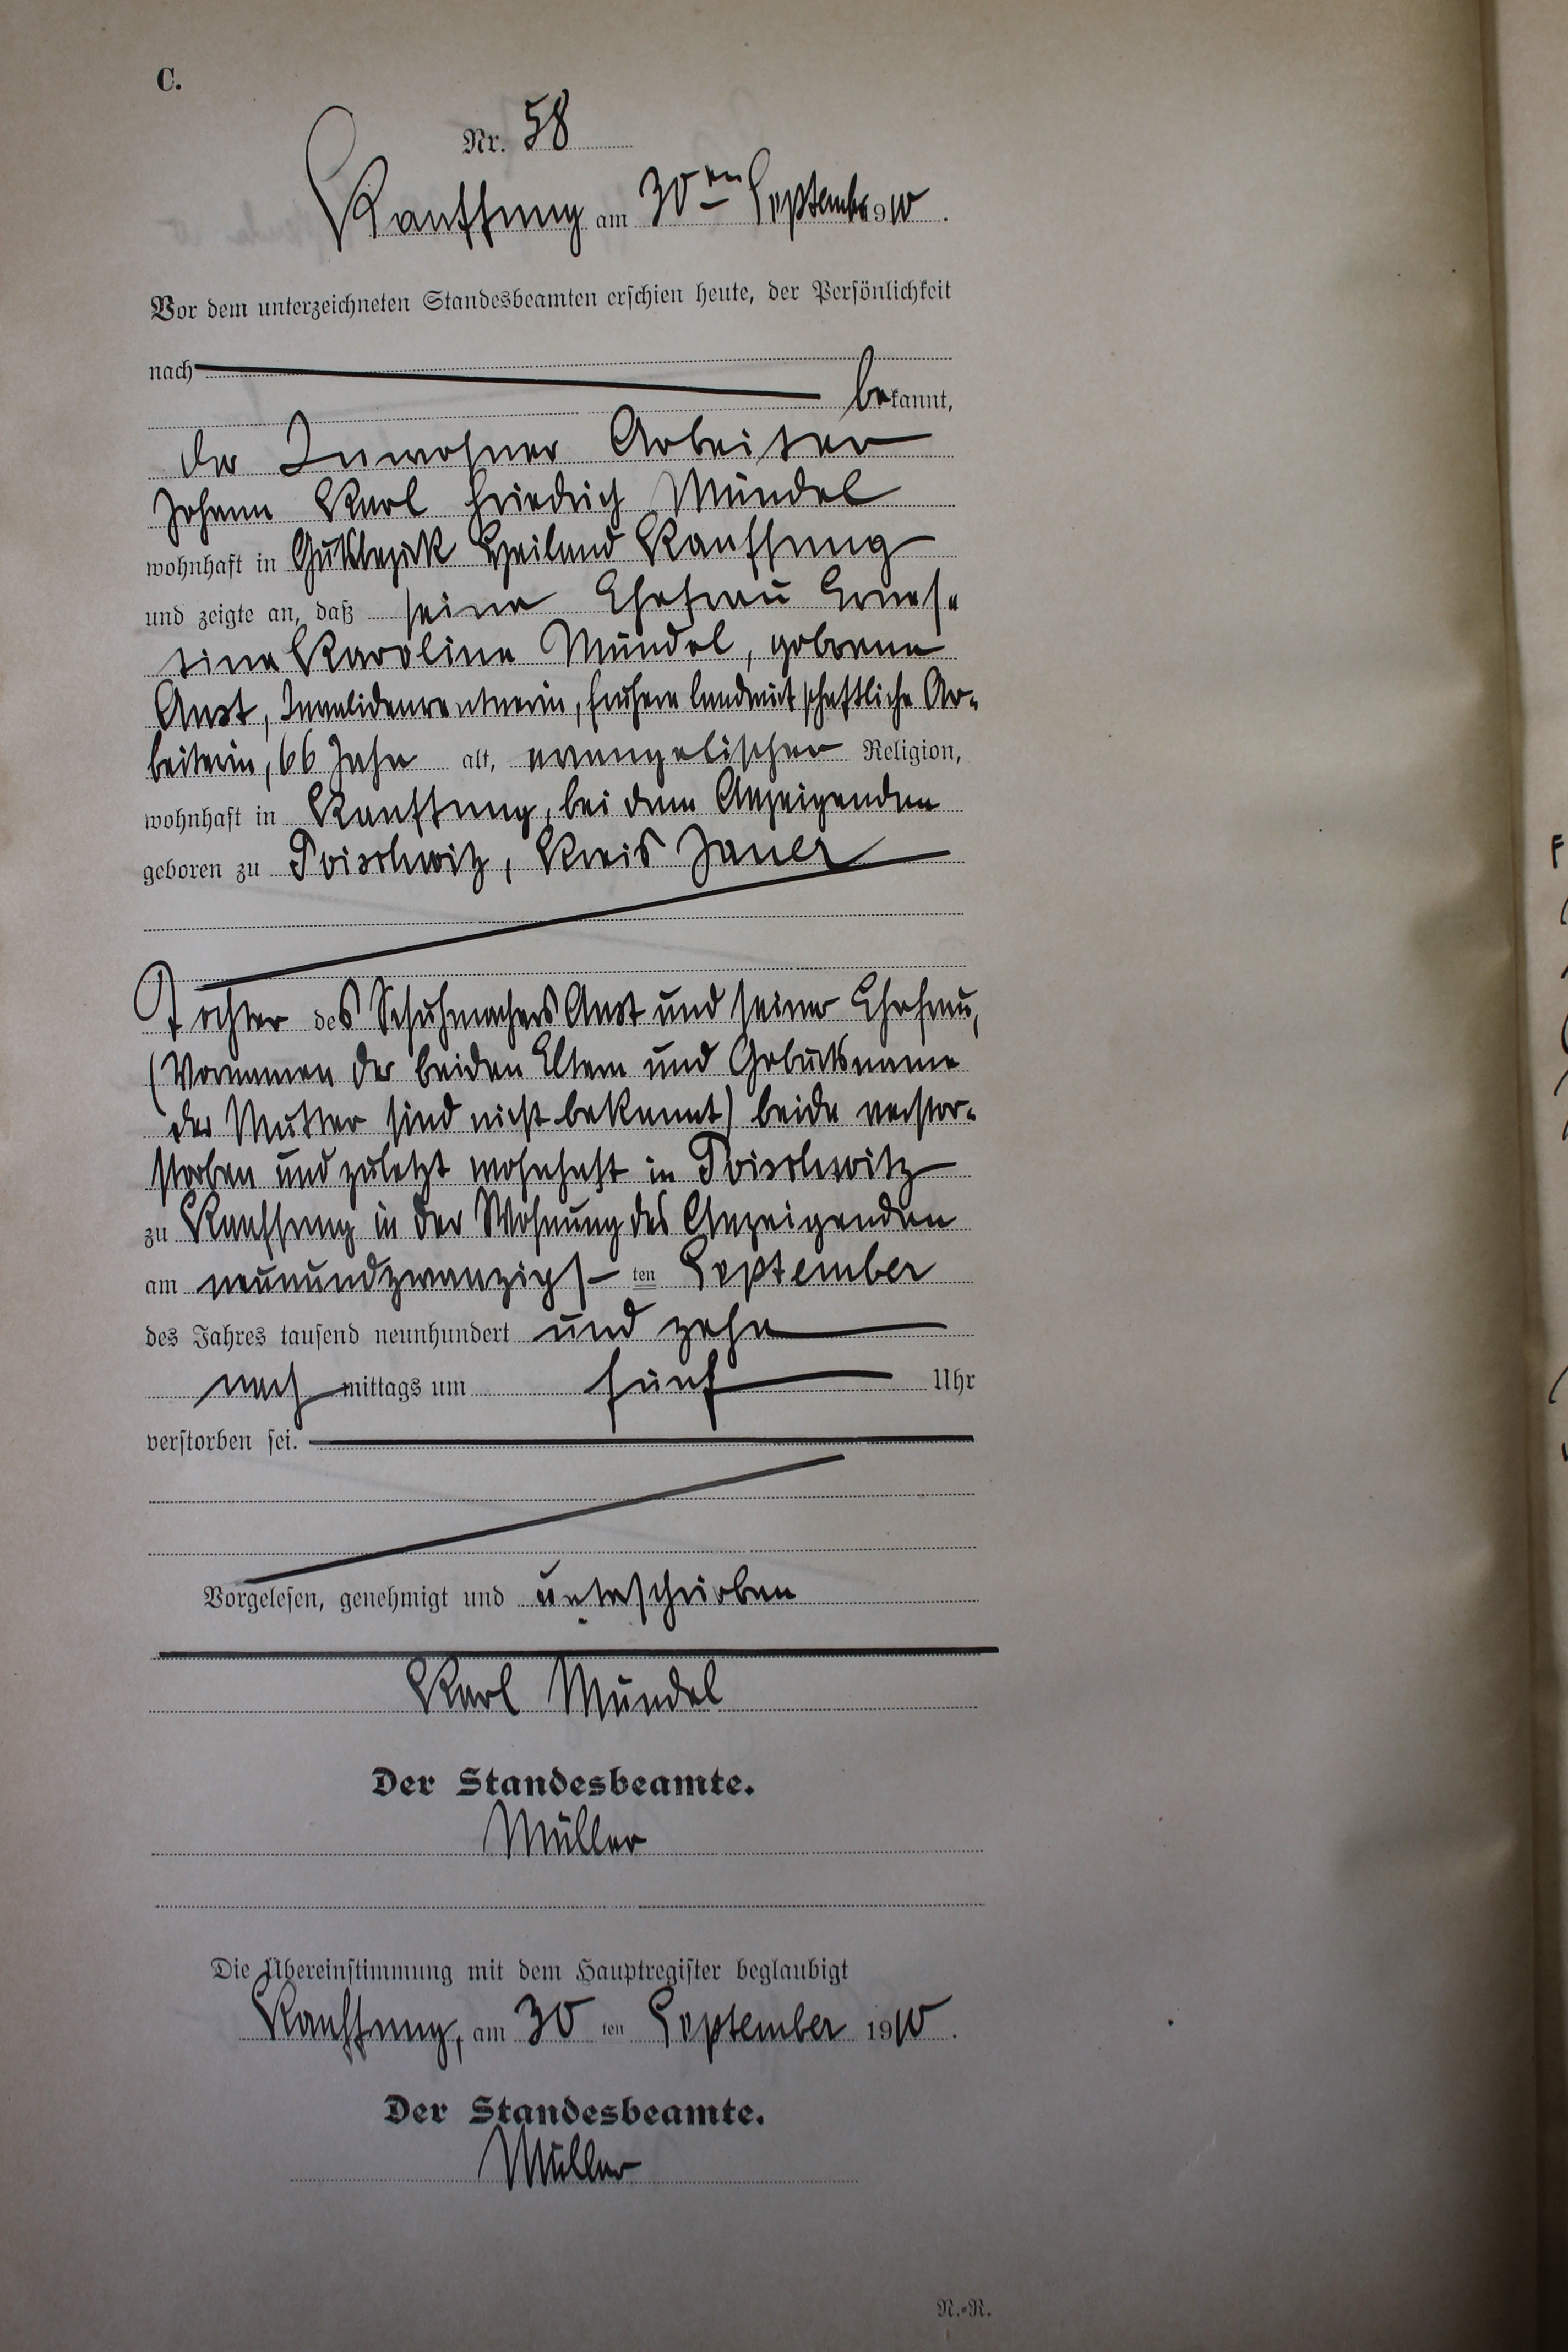 C.
Nr. 58
Kauffung am 30ten September 1910.
Vor dem unterzeichneten Standesbeamten erschien heute, der Persönlichkeit
nach
bekannt,
der Inwohner Arbeiter
Johann Karl Friedrich Mündel
wohnhaft in Gutsbezirk Heiland Kauffung
und zeigte an, daß seine Ehefrau Ernes-
tine Karoline Mündel, geborene
Anst, Invalidenrentnerin, frühere landwirtschaftliche Ar-
beiterin, 66 Jahre alt, evangelischer Religion,
wohnhaft in Kauffung, bei dem Anzeigenden
geboren zu Poischwitz, Kreis Jauer
Tochter des Schuhmachers Anst und seiner Ehefrau,
(Vornamen der beiden Eltern und Geburtsname
der Mutter sind nicht bekannt) beide verstor-
storben und zuletzt wohnhaft in Poischwitz
zu Kauffung in der Wohnung des Anzeigenden
am neunundzwanzigs ten September
des Jahres tausend neunhundert und zehn
nach mittags um fünf Uhr
verstorben sei.
Vorgelesen, genehmigt und unterschrieben
Karl Mündel
Der Standesbeamte.
Müller
Die Übereinstimmung mit dem Hauptregister beglaubigt
Kauffung, am 30 ten September 1910.
Der Standesbeamte.
Müller
N.-R.